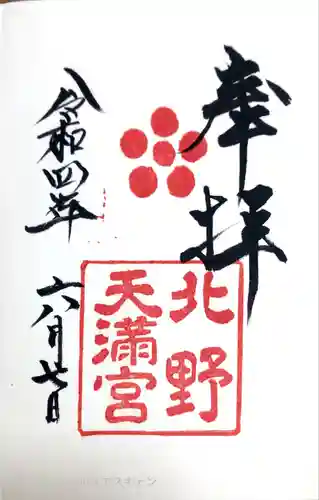 奉拝
北野
天満宮
令和四年
六月廿日